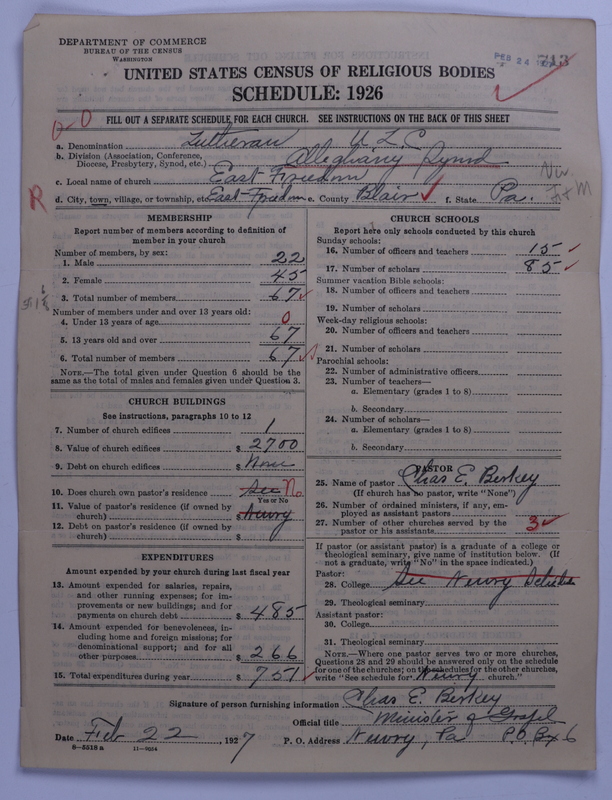 DEPARTMENT OF COMMERCE
BUREAU OF THE CENSUS
WASHINGTON
FEB 24
713
UNITED STATES CENSUS OF RELIGIOUS BODIES
SCHEDULE: 1926
FILL OUT A SEPARATE SCHEDULE FOR EACH CHURCH. SEE INSTRUCTIONS ON THE BACK OF THIS SHEET
a. Denomination Lutheran U L C
b. Division (Association, Conference, Diocese, Presbytery, Synod, etc.) Alleghany Synod
c. Local name of church East Freedom
d. City, town, village, or township, etc. East Freedom e. County Blair f. State Pa.
R
MEMBERSHIP
Report number of members according to definition of
member in your church
Number of members, by sex:
1. Male 22
2. Female 45
3. Total number of members 67
Number of members under and over 13 years old:
4. Under 13 years of age 0
5. 13 years old and over 67
6. Total number of members 67
NOTE.—The total given under Question 6 should be
same as the total of males and females given under Question 3.
CHURCH BUILDINGS
See instructions, paragraphs 10 to 12
7. Number of church edifices 1
8. Value of church edifices $ 2700
9. Debt on church edifices $ None
10. Does church own pastor's residence See No
Yes or No
11. Value of pastor's residence (if owned by
church) $ Newry
12. Debt on pastor's residence (if owned by
church) $
EXPENDITURES
Amount expended by your church during last fiscal year
13. Amount expended for salaries, repairs,
and other running expenses; for im-
provements or new buildings; and for
payments on church debt $ 485
14. Amount expended for benevolences, in-
cluding home and foreign missions; for
denominational support; and for all
other purposes $ 266
15. Total expenditures during year $ 751
CHURCH SCHOOLS
Report here only schools conducted by this church
Sunday schools:
16. Number of officers and teachers 15
17. Number of scholars 85
Summer vacation Bible schools:
18. Number of officers and teachers
19. Number of scholars
Week-day religious schools:
20. Number of officers and teachers
21. Number of scholars
Parochial schools:
22. Number of administrative officers
23. Number of teachers—
a. Elementary (grades 1 to 8)
b. Secondary
24. Number of scholars—
a. Elementary (grades 1 to 8)
b. Secondary
PASTOR
25. Name of pastor Chas E. Berkey
(If church has no pastor, write "None")
26. Number of ordained ministers, if any, em-
ployed as assistant pastors
27. Number of other churches served by the
pastor or his assistants 3
If pastor (or assistant pastor) is a graduate of a college or
theological seminary, give name of institution below. (If
not a graduate, write "No" in the space indicated.)
Pastor:
28. College See Newry Schedule
29. Theological seminary
Assistant pastor:
30. College
31. Theological seminary
NOTE.—Where one pastor serves two or more churches,
Questions 28 and 29 should be answered only on the schedule
for one of the churches; on the schedules for the other churches,
write "See schedule for Newry church."
Signature of person furnishing information Chas E. Berkey
Official title Minister of Gospel
Date Feb 22, 1927 P. O. Address Newry, Pa P.O. Bx 6
8-5518 a 11-9024